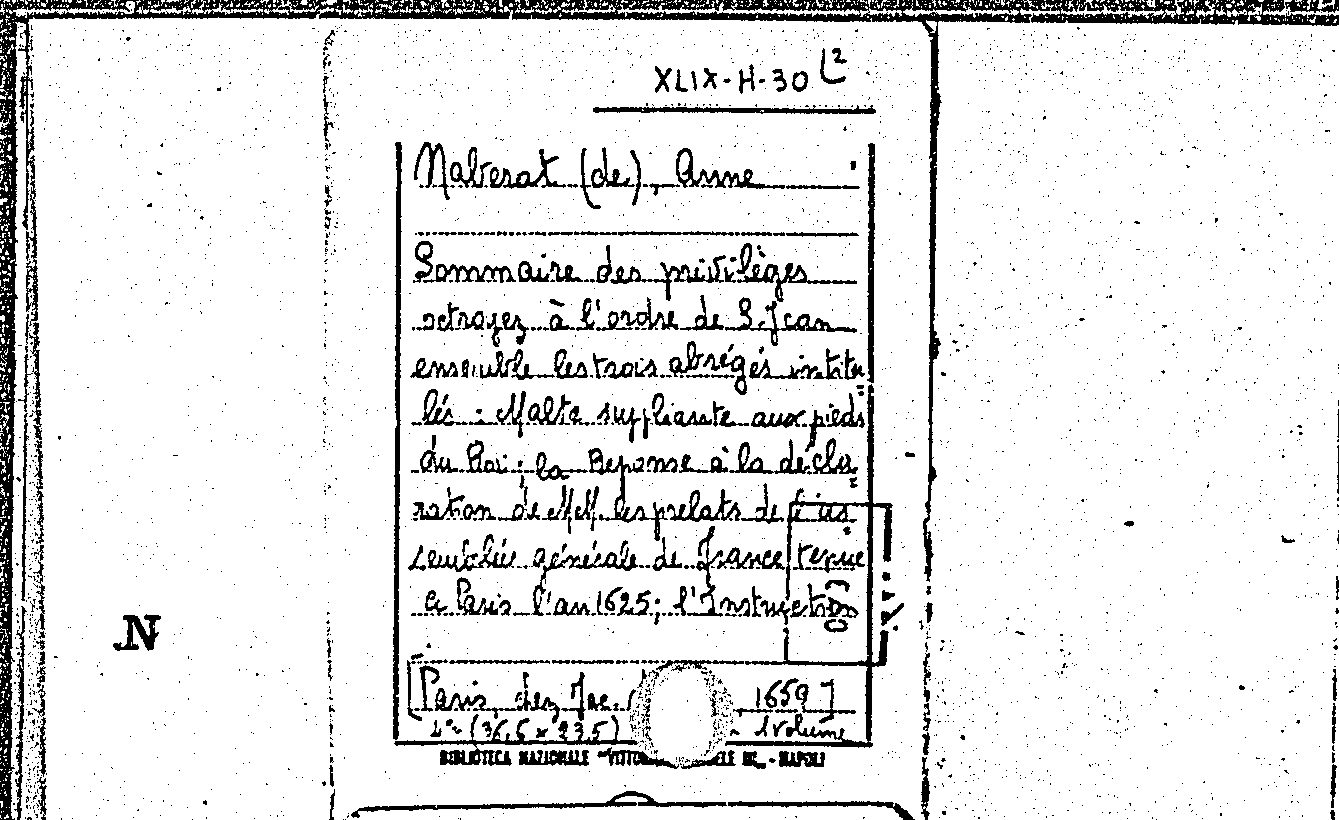 XLIX-H-30 L2
Naberat (de), Anne
Sommaire des privilèges
octroyez à l'ordre de S. Jean
ensemble les trois abrégés intitu
lés : Malte suppliante aux pieds
du Roi ; la Reponse à la décla
ration de MM. les prelats de l'as
semblée générale de France tenue
a Paris l'an 1625; l'Instruction
N
[Paris, chez Jac. 1659]
4° (36,5 x 23,5) 1 Volume
BIBLIOTECA NAZIONALE - NAPOLI